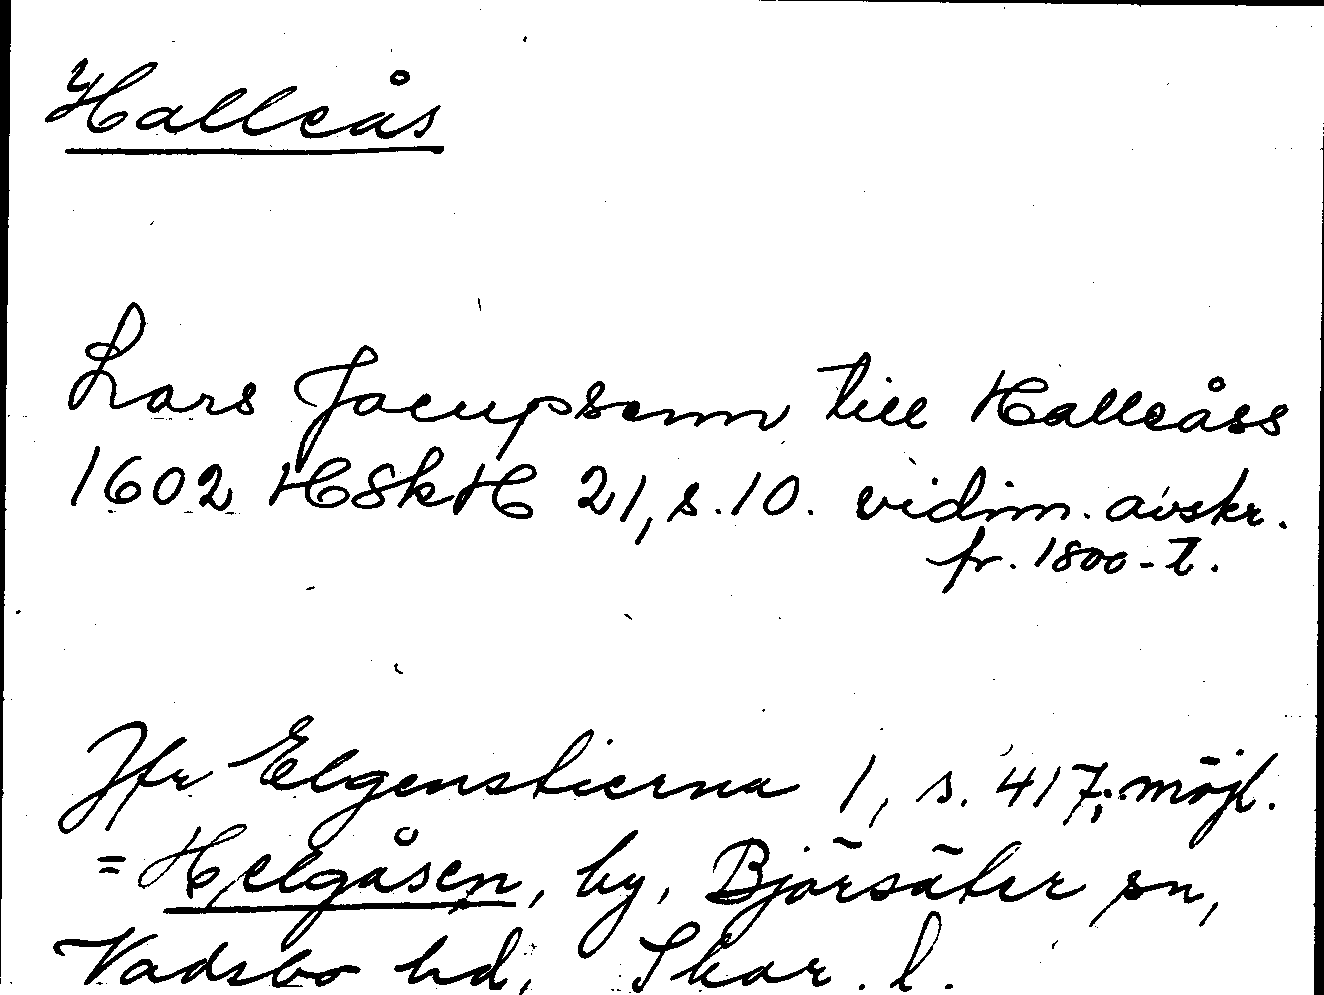 Halleås
Lars Jacupsenn till Halleåss
1602 HSkH 21, s. 10. vidim. avskr.
fr. 1800-t.
Jfr Elgenstierna 1, s. 417; möjl.
= Helgåsen, by, Björsäter sn,
Vadsbo hd, Skar. l.